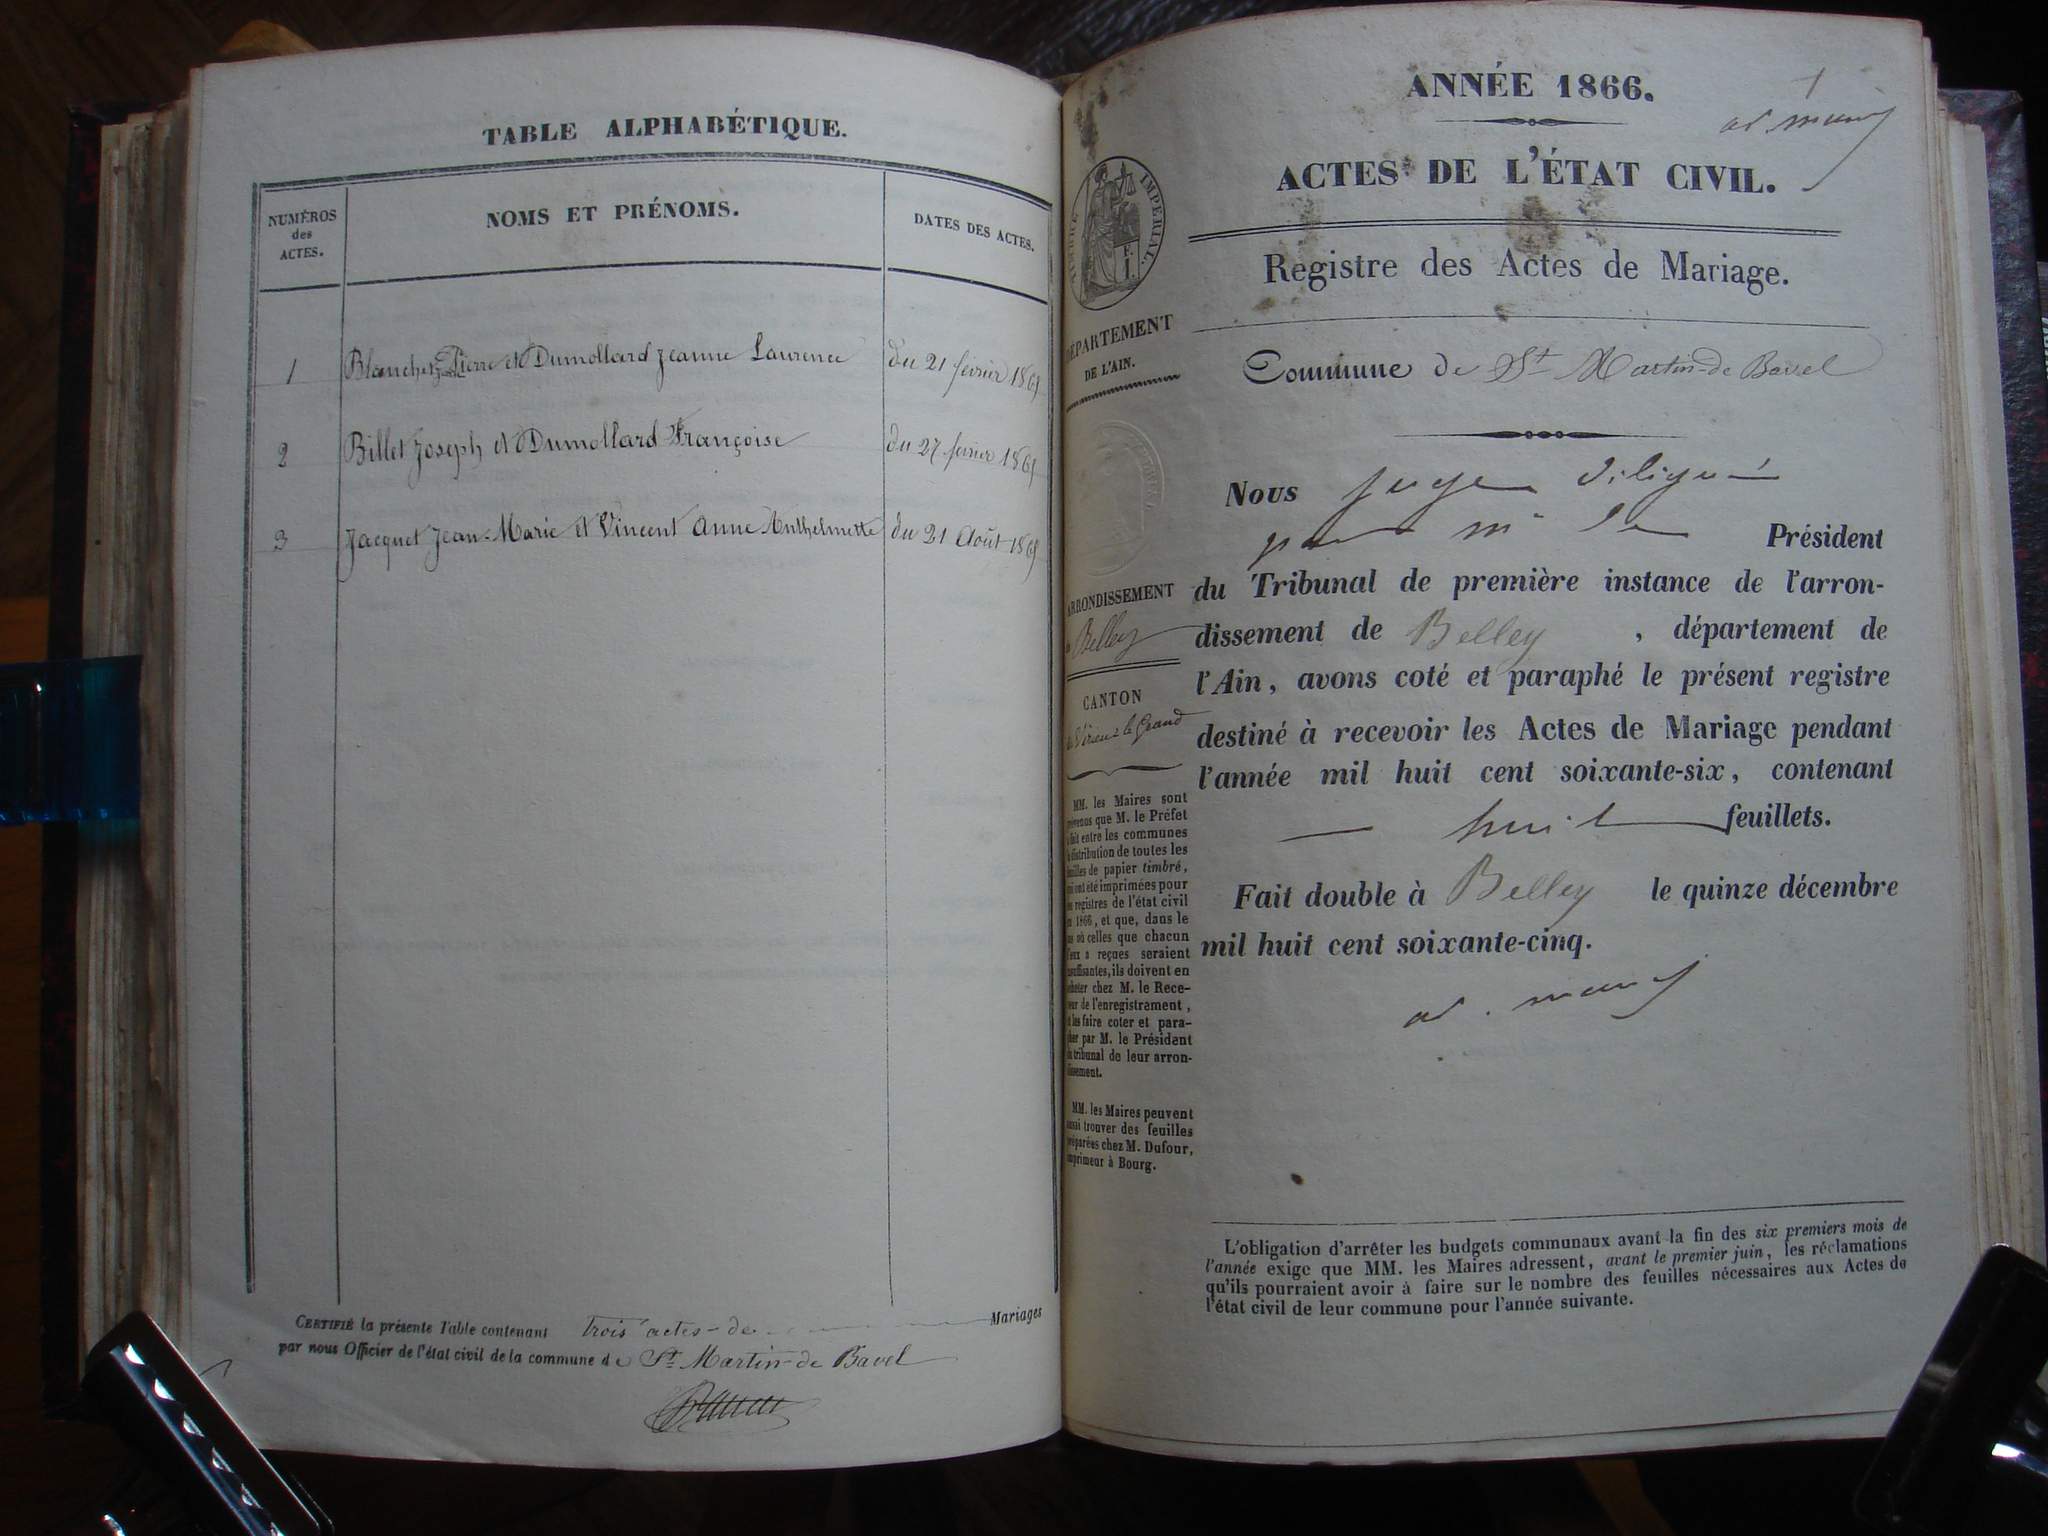 TABLE ALPHABÉTIQUE.
NUMÉROS des ACTES.
NOMS ET PRÉNOMS.
DATES DES ACTES.
1 Blanchet Pierre et Dumollard Jeanne Laurence du 21 février 1865
2 Billet Joseph et Dumollard Françoise du 27 février 1865
3 Jacquet Jean-Marie et Vincent Anne Anthelmette du 21 Août 1865
CERTIFIÉ la présente Table contenant trois actes de Mariages
par nous Officier de l'état civil de la commune de St Martin-de Bavel
ANNÉE 1866.
1
ACTES DE L'ÉTAT CIVIL.
Registre des Actes de Mariage.
TIMBRE IMPÉRIAL.
DÉPARTEMENT
DE L'AIN.
Commune de St Martin-de Bavel
Nous juge délégué
pour mr le Président
du Tribunal de première instance de l'arron-
dissement de Belley, département de
l'Ain, avons coté et paraphé le présent registre
destiné à recevoir les Actes de Mariage pendant
l'année mil huit cent soixante-six, contenant
huit feuillets.
Fait double à Belley le quinze décembre
mil huit cent soixante-cinq.
ARRONDISSEMENT
de Belley
CANTON
de Virieu le Grand
MM. les Maires sont
prévenus que M. le Préfet
a fait entre les communes
la distribution de toutes les
feuilles de papier timbré,
qui ont été imprimées pour
les registres de l'état civil
en 1866, et que, dans le
cas où celles que chacun
d'eux a reçues seraient
insuffisantes, ils doivent en
acheter chez M. le Rece-
veur de l'enregistrement,
et les faire coter et para-
pher par M. le Président
du tribunal de leur arron-
dissement.
MM. les Maires peuvent
aussi trouver des feuilles
préparées chez M. Dufour,
imprimeur à Bourg.
L'obligation d'arrêter les budgets communaux avant la fin des six premiers mois de
l'année exige que MM. les Maires adressent, avant le premier juin, les réclamations
qu'ils pourraient avoir à faire sur le nombre des feuilles nécessaires aux Actes de
l'état civil de leur commune pour l'année suivante.